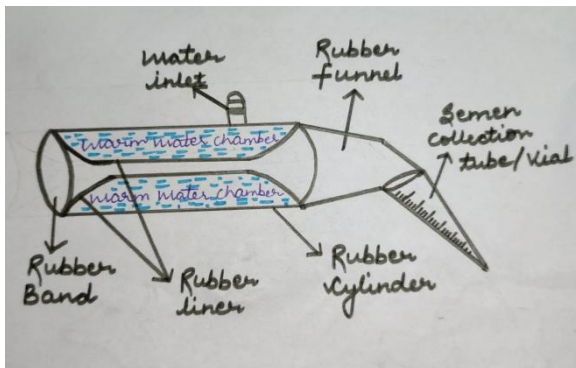 Water
inlet
Rubber
funnel
Semen
collection
tube/vial
warm water chamber
warm water chamber
Rubber
Band
Rubber
liner
Rubber
cylinder